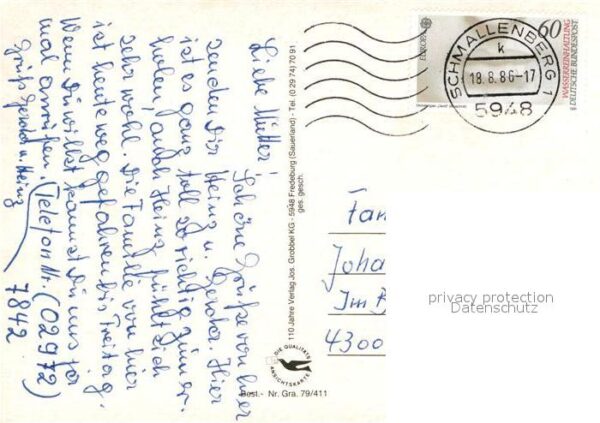 Liebe Mutter!
Schöne Grüße von hier
senden Dir Heinz u. Gerda. Hier
ist es ganz toll so richtig zum er-
holen, auch Heinz fühlt sich
sehr wohl. Die Familie von hier
ist heute weg gefahren bis Freitag.
Wenn Du willst kannst Du uns ja
mal anrufen. (Telefon Nr. (02972)
7842
Gruß Gerda u. Heinz
110 Jahre Verlag Jos. Grobbel KG - 5948 Fredeburg (Sauerland) - Tel. (0 29 74) 70 91
ges. gesch.
DIE QUALITÄTS
ANSICHTSKARTE
Best.- Nr. Gra. 79/411
EUROPA
60
WASSERREINHALTUNG
DEUTSCHE BUNDESPOST
SCHMALLENBERG 1
k
18.8.86-17
5948
Fam
Joha
Im B
4300
privacy protection
Datenschutz